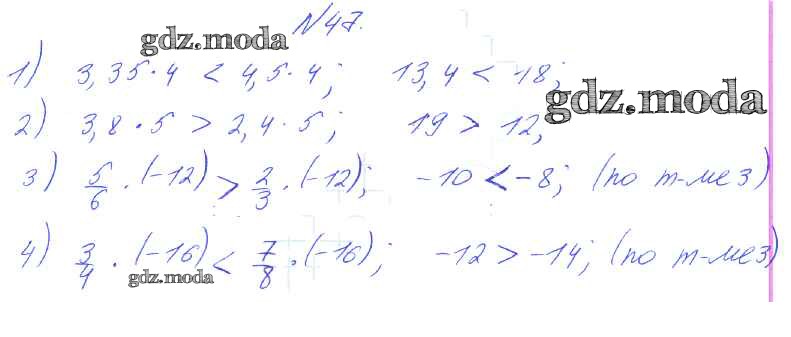 №47.
gdz.moda
1) 3,35·4 < 4,5·4; 13,4 < 18;
gdz.moda
2) 3,8·5 > 2,4·5; 19 > 12;
3) 5/6·(-12) > 2/3·(-12); -10 < -8; (по т-ме 3)
4) 3/4·(-16) < 7/8·(-16); -12 > -14; (по т-ме 3)
gdz.moda